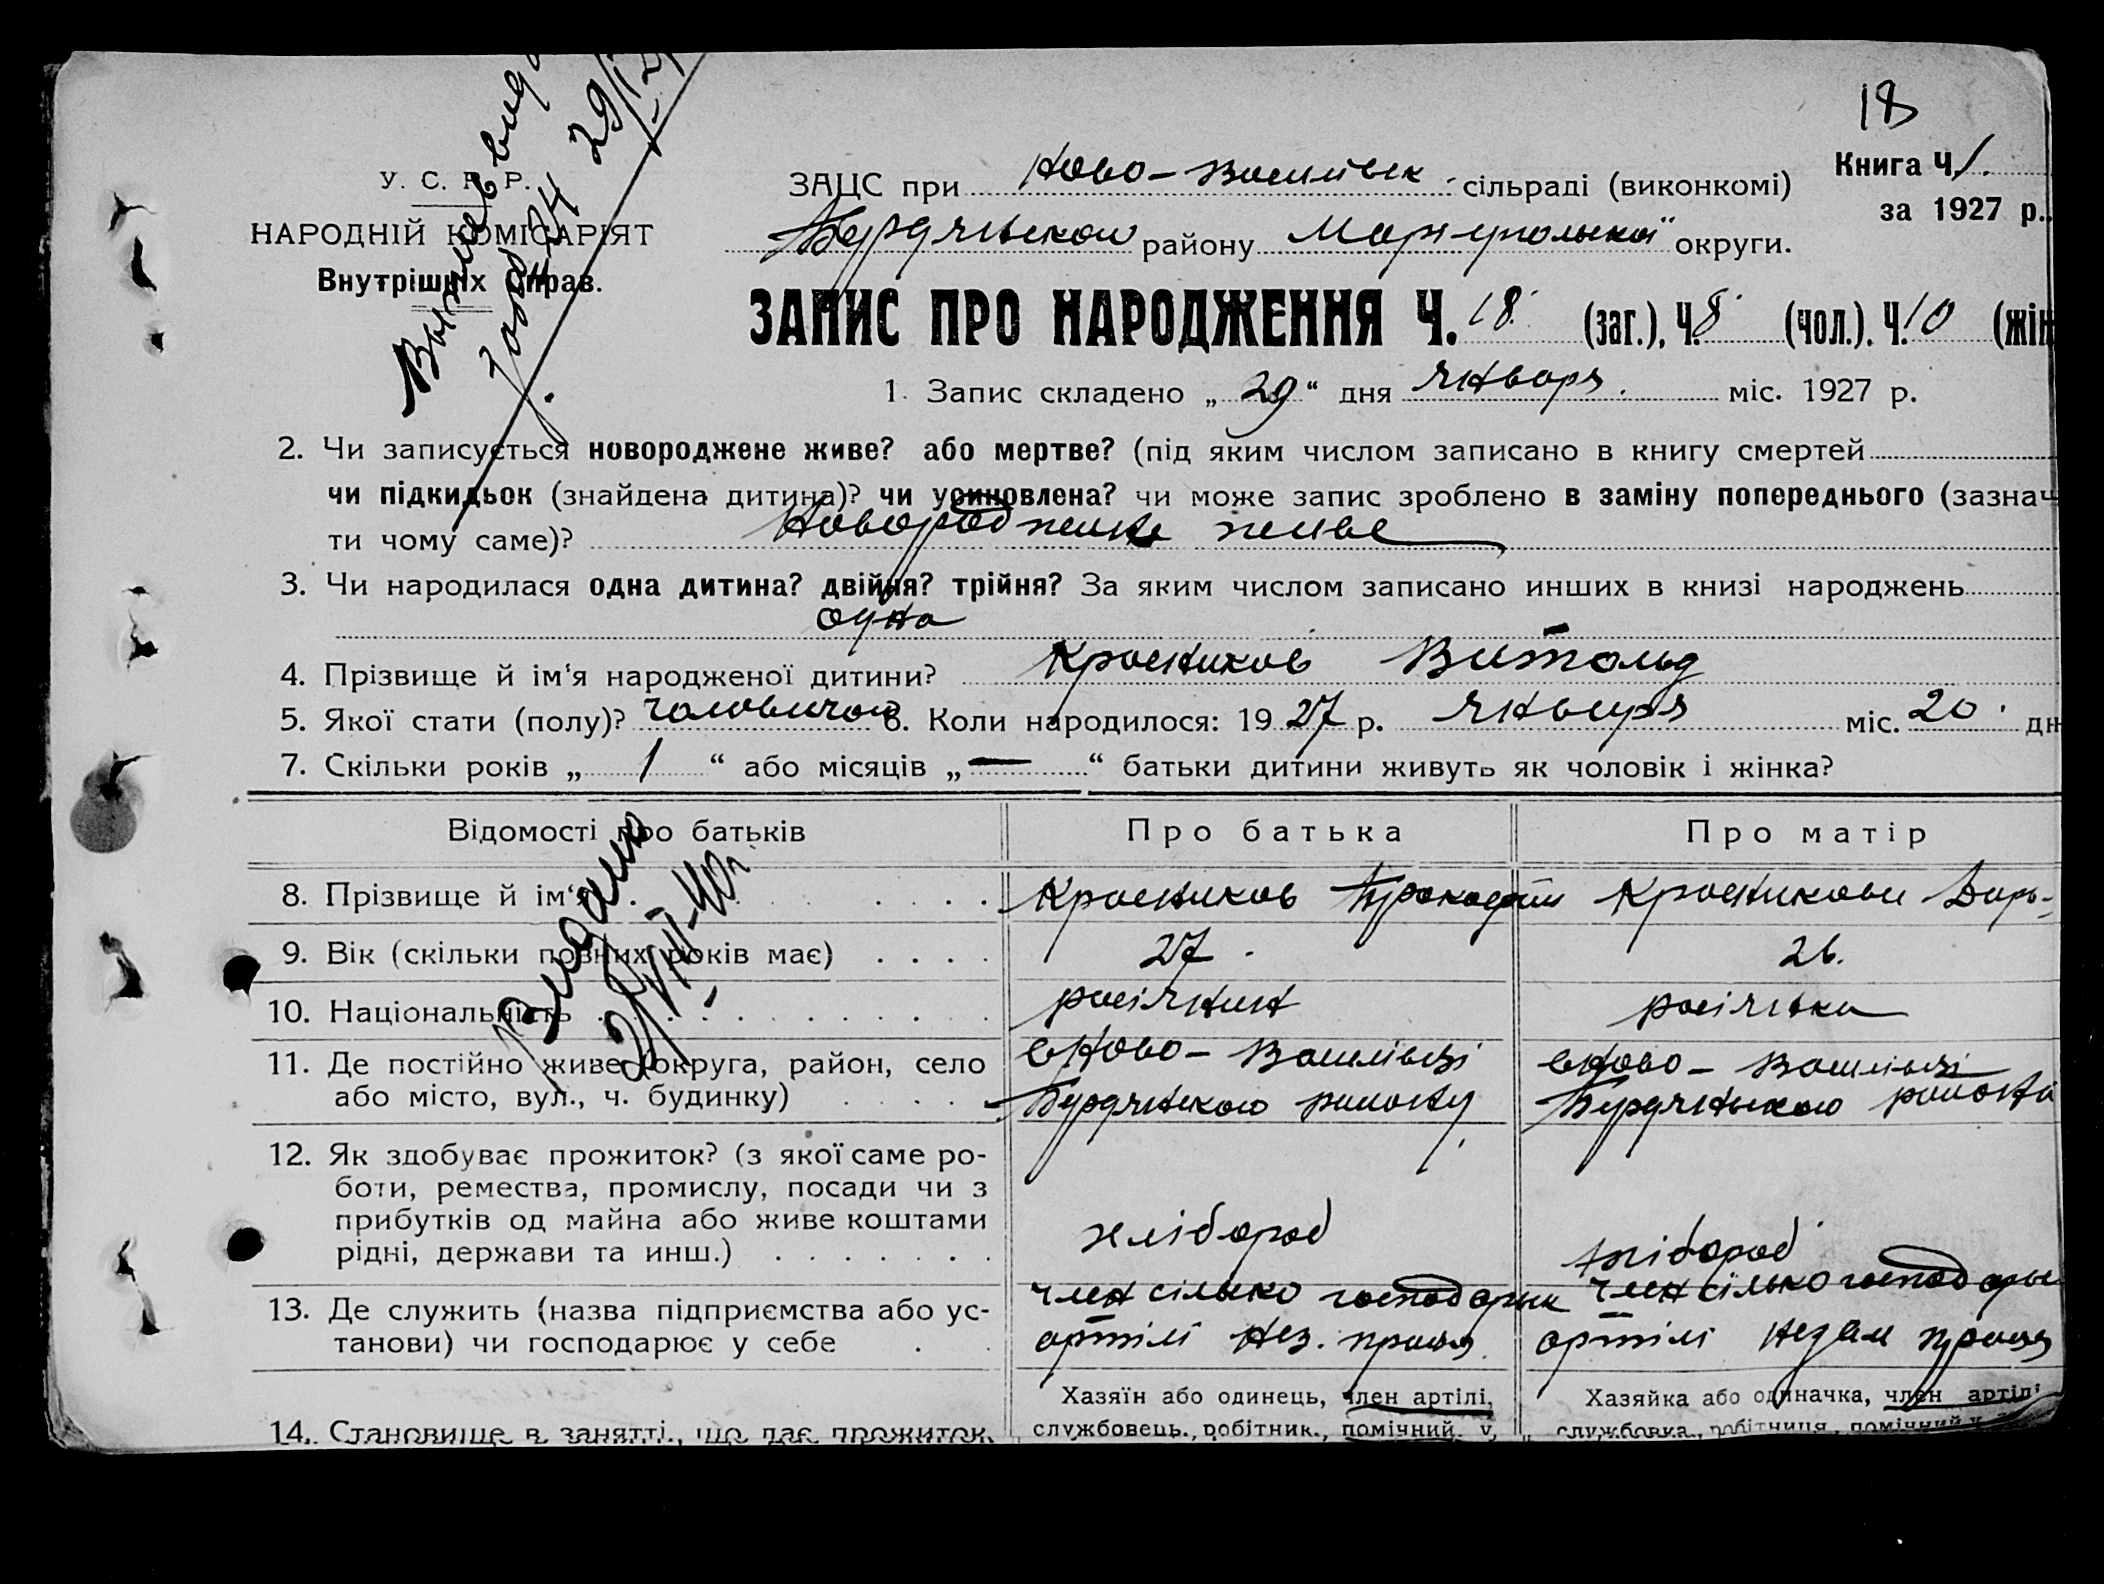 18
У. С. Р. Р.
НАРОДНІЙ КОМІСАРІЯТ
Внутрішніх справ.
ЗАЦС при Ново-Василівск. сільраді (виконкомі)
Бердянськом району Маріупольської округи.
Книга Ч. 1.
за 1927 р.
ЗАПИС ПРО НАРОДЖЕННЯ Ч. 18. (заг.), Ч. 8 (чол.), Ч. 10 (жін
1. Запис складено „ 29 “ дня Января. міс. 1927 р.
2. Чи записується новороджене живе? або мертве? (під яким числом записано в книгу смертей
чи підкидьок (знайдена дитина)? чи усиновлена? чи може запис зроблено в заміну попереднього (зазнач
ти чому саме)? Новородженне живе
3. Чи народилася одна дитина? двійня? трійня? За яким числом записано инших в книзі народжень
одна
4. Прізвище й ім'я народженої дитини? Красников Витольд
5. Якої стати (полу)? чоловичои 6. Коли народилося: 1927 р. Января міс. 20. дн
7. Скільки років „ 1 “ або місяців „ — “ батьки дитини живуть як чоловік і жінка?
Відомості про батьків
Про батька
Про матір
8. Прізвище й ім'я
Красников Прокофий
Красникови Варь-
9. Вік (скільки повних років має)
27.
26.
10. Національність
росіянин
росіянка
11. Де постійно живе (округа, район, село
або місто, вул., ч. будинку)
в Ново-Василівці
Бердянського району
в Ново-Василівці
Бердянського району
12. Як здобуває прожиток? (з якої саме ро-
боти, ремества, промислу, посади чи з
прибутків од майна або живе коштами
рідні, держави та инш.)
хлібороб
хлібороб
13. Де служить (назва підприємства або ус-
танови) чи господарює у себе
член сільско господарск
артілі Нез. праця
член сільско господарск
артілі Незам праця
14. Становище в занятті, що дає прожиток.
Хазяїн або одинець, член артілі,
службовець, робітник, помічний у
Хазяйка або одначка, член артілі
службовка, робітниця, помічний у
Видано